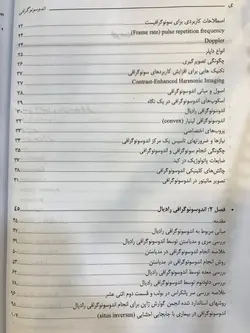 ی
اندوسونوگرافی
اصطلاحات کاربردی برای سونوگرافیست
(Frame rate) pulse repetition frequency
Doppler
انواع داپلر
چگونگی تصویرگیری
تکنیک هایی برای افزایش کاربردهای سونوگرافی
Contrast-Enhanced Harmonic Imaging
اصول و مبانی اندوسونوگرافی
اسکوپ‌های اندوسونوگرافی در یک نگاه
اندوسونوگرافی رادیال
اندوسونوگرافی لینیار (convex)
پروب‌های اختصاصی
نیازها و ضرورتهای تأسیس یک مرکز اندوسونوگرافی
چگونگی انجام سونوگرافی و اندوسونوگرافی
ضایعات پاتولوژیک در کبد
چالش‌های کلینیکی اندوسونوگرافی
تصویر مانیتور در اندوسونوگرافی
فصل ۲: اندوسونوگرافی رادیال ۴۵
مقدمه
مبانی مربوط به اندوسونوگرافی رادیال
بررسی مری و مدیاستن توسط اندوسونوگرافی رادیال
خلاصه انجام اندوسونوگرافی در مدیاستن
روش انجام اندوسونوگرافی در مدیاستن
بررسی معده توسط اندوسونوگرافی رادیال
بررسی دئودنوم توسط اندوسونوگرافی رادیال
خلاصه بررسی سر پانکراس در بولب و قسمت دوم اثنی عشر
روشهای استاندارد شده انجمن گوارش ژاپن برای انجام اندوسونوگرافی رادیال
اندوسونوگرافی در بیماری با جابجایی احشایی (situs inversus)